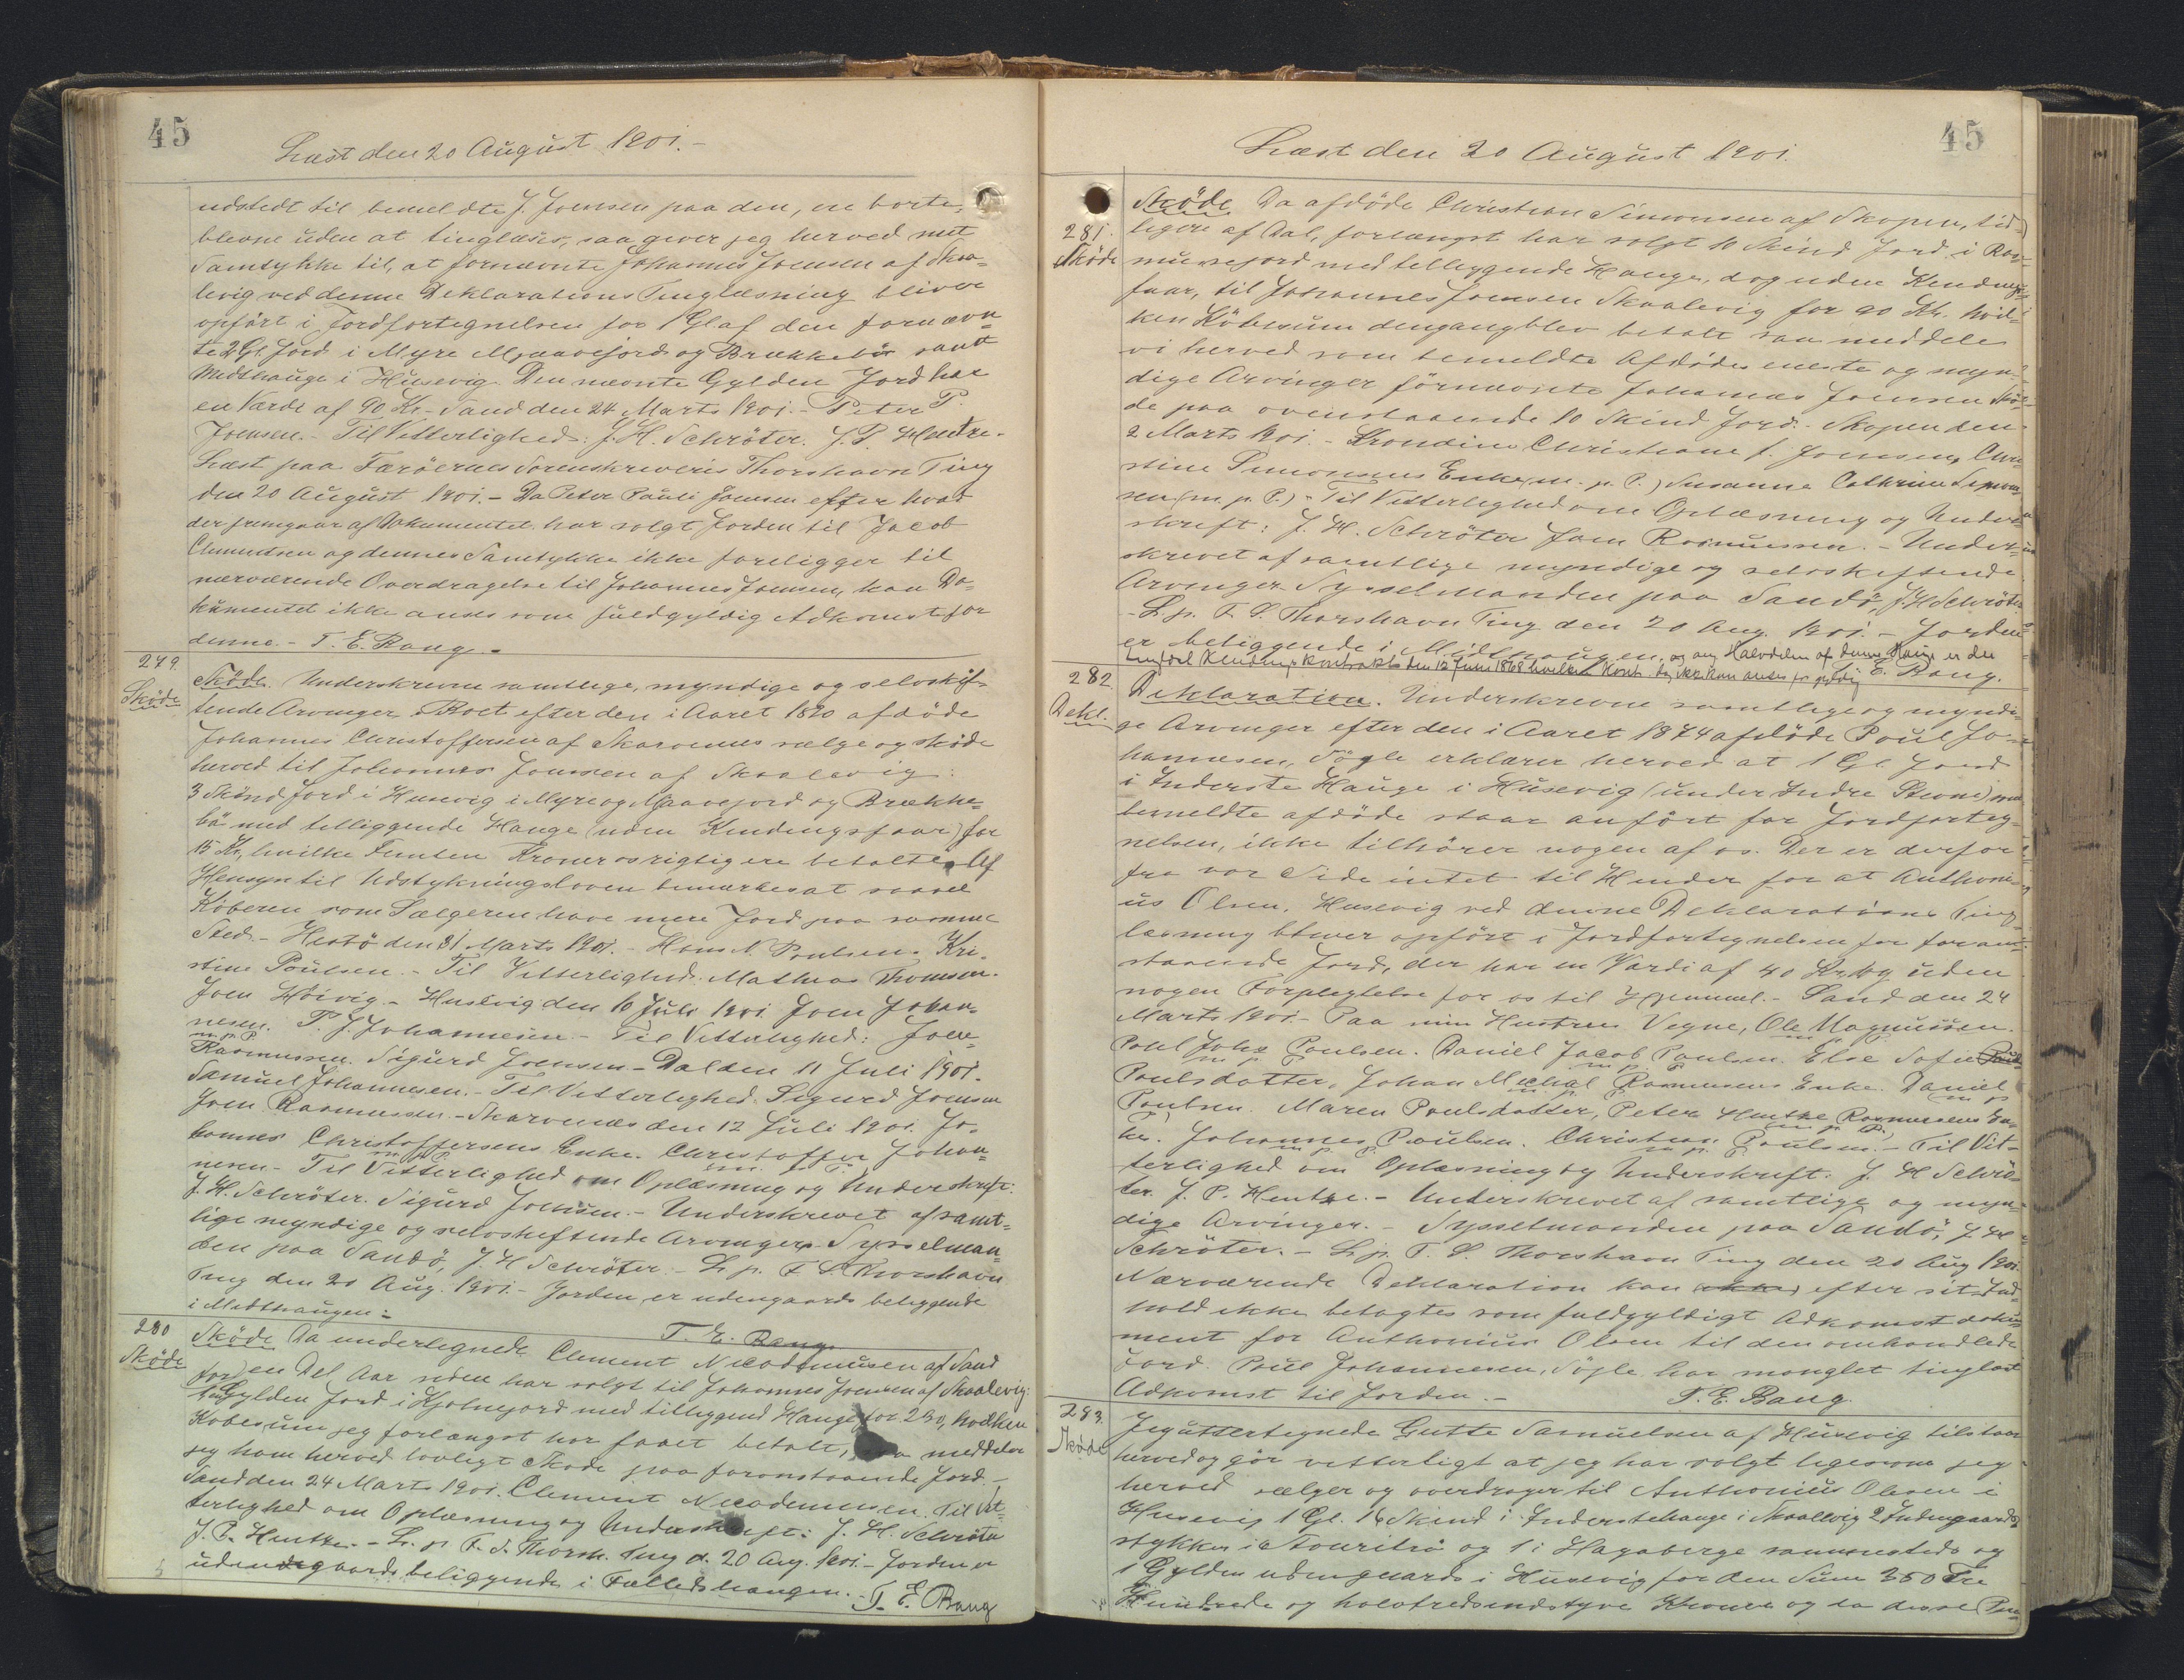 45
Læst den 20 August 1901.-
udstedt til bemeldte J. Joensen paa den, ere borte,
blevne uden at tinglæses, saa giver jeg herved mit
Samtykke til, at fornævnte Johannes Joensen af Skaa-
levig ved denne Deklarations Tinglæsning bliver
opført i Jordfortegnelsen for 1 Gl af den fornævn-
te 2 Gl. Jord i Myre Mjaavejord og Brækkebø samt
Midthauge i Husevig. Den nævnte Gylden Jord har
en Værdi af 90 Kr.- Sand den 24 Marts 1901.- Peter P.
Joensen.- Til Vitterlighed: J. H. Schröter. J. P. Hentze.-
Læst paa Færöernes Sorenskriveris Thorshavn Ting
den 20 August 1901.- Da Peter Pauli Joensen efter hvad
der fremgaar af Dokumentet har solgt Jorden til Jacob
Clemendsen og dennes Samtykke ikke foreligger til
nærværende Overdragelse til Johannes Joensen, kan Do-
kumentet ikke anses som fuldgyldig Adkomst for
denne.- T. E. Bang.-
279.
Sköde
Sköde. Underskrevne samtlige, myndige og selvskif-
tende Arvinger Boet efter den i Aaret 1820 afdöde
Johannes Christoffersen af Skarvenæs sælge og sköde
herved til Johannes Joensen af Skaalevig:
3 Skind Jord i Husevig i Myre og Mjaavejord og Brække-
bø med tilliggende Hauge (uden Kendingsfaar) for
15 Kr, hvilke Femten Kroner os rigtig ere betalte. Af
Hensyn til Udstykningsloven bemærkes at saavel
Köberen som Sælgeren have mere Jord paa samme
Sted.- Hestö den 31 Marts 1901.- Hans N. Poulsen. Kri-
stine Poulsen.- Til Vitterlighed: Mathias Thomsen.
Joen Höivig.- Husevig den 10 Juli 1901. Joen Johan-
nesen. P. J. Johannesen.- Til Vitterlighed: Joen
m. p. P.
Rasmussen. Sigurd Joensen.- Dal den 11 Juli 1901.
Samuel Johannesen.- Til Vitterlighed. Sigurd Joensen
Joen Rasmussen.- Skarvenæs den 12 Juli 1901. Jo-
hannes Christoffersens Enke. Christoffer Johan-
m. p. P. m. p. P.
nesen.- Til Vitterlighed om Oplæsning og Underskrift:
J. H. Schröter. Sigurd Joensen.- Underskrevet af samt-
lige myndige og selvskiftende Arvinger. Sysselman-
den paa Sandö, J. H Schröter.- L. p. F. S. Thorshavn
Ting den 20 Aug. 1901.- Jorden er udengaards beliggende
i Midthaugen.-
T. E. Bang.
280
Sköde
Sköde. Da undertegnede Clement Nicodemusen af Sand
for en Del Aar siden har solgt til Johannes Joensen af Skaalevig:
1 Gylden Jord i Hjolnejord med tilliggend Hauge for 290, hvilken
Købesum jeg forlængst har faaet betalt, saa meddeler
jeg ham herved lovligt Sköde paa foranstaaende Jord.-
Sand den 24 Marts 1901. Clement Nicodemusen. Til Vit-
terlighed om Oplæsning og Underskrift: J. H. Schröter
J. P. Hentze.- L. p. F. S. Thorsh. Ting d. 20 Aug. 1901.- Jorden er
udengaards beliggende i Fælledshaugen.- T. E. Bang
45
Læst den 20 August 1901.
281.
Sköde
Sköde. Da afdöde Christian Simonsen af Skopen, tid-
ligere af Dal, forlængst har solgt 10 Skind Jord i Ras-
musejord med tilliggende Hauge, dog uden Kendings-
faar, til Johannes Joensen Skaalevig for 90 Kr. hvil-
ken Köbesum dengang blev betalt saa meddele
vi herved som bemeldte Afdödes eneste og myn-
dige Arvinger förnævnte Johannes Joensen Skö-
de paa ovenstaaende 10 Skind Jord. Skopen den
2 Marts 1901.- Frondine Christiane f. Joensen, Chri-
stine Simonsens Enke (m. p. P.) Susanne Cathrine Simon-
sen (m. p. P.).- Til Vitterlighed om Oplæsning og Under-
skrift: J. H. Schröter Joen Rasmussen.- Under-
skrevet af samtlige myndige og selvskiftende
Arvinger. Sysselmanden paa Sandö, J. H Schröter
L. p. F. S. Thorshavn Ting den 20 Aug. 1901.- Jorden
er beliggende i Midthaugen, og om Halvdelen af denne Hauge er der
tinglæst Kendings kontrakt den 12 Juni 1868 hvilken Kontr. dog ikke kan anses for gyldig E. Bang.
282.
Dekl.
Deklaration. Underskrevne samtlige og myndi-
ge Arvinger efter den i Aaret 1874 afdöde Poul Jo-
hannesen, Sögle erklærer herved at 1 Gl. Jord
i Inderste Hauge i Husevig (under Indre Stevne) som
bemeldte afdöde staar anført for Jordforteg-
nelsen, ikke tilhörer nogen af os. Der er derfor
fra vor Side intet til Hinder for at Anthoni-
us Olsen, Husevig ved denne Deklarations Ting-
læsning bliver opfört i Jordfortegnelsen for foran-
staaende Jord, der har en Værdi af 40 Kr, og uden
nogen Forpligtelse for os til Hjemmel.- Sand den 24
Marts 1901.- Paa min Hustrues Vegne, Ole Magnussen.
Poul Johs Poulsen. Daniel Jacob Poulsen. Else Sofie
Poulsdatter, Johan Michal Rasmussens Enke. Daniel
Poulsen. Maren Poulsdatter, Peter Hentze Rasmussens En-
ke. Johannes Poulsen. Christian Poulsen.- Til Vit-
terlighed om Oplæsning og Underskrift: J. H Schrö-
ter. J. P. Hentze.- Underskrevet af samtlige og myn-
dige Arvinger.- Sysselmanden paa Sandö, J. H
Schröter.- L. p. F. S. Thorshavn Ting den 20 Aug 1901.
Nærværende Deklaration kan ikke efter sit Ind-
hold ikke betragtes som fuldgyldigt Adkomst doku-
ment for Anthonius Olsen til den omhandlede
Jord. Poul Johannesen, Söyle, har manglet tinglæst
Adkomst til Jorden.-
T. E. Bang.
283.
Sköde
Jeg undertegnede Gutte Samuelsen af Husevig tilstaar
herved og gör vitterligt at jeg har solgt ligesom jeg
herved sælger og overdrager til Anthonius Olsen i
Husevig 1 Gl. 16 Skind i Inderstehauge i Skaalevig 2 Indengaards
stykker i Stouritrö og 1 i Hagaberge sammesteds og
1 Gylden udengaards i Husevig for den Sum 350 Tre
Hundrede og halvtredsindstyve Kroner og da desse Pen-